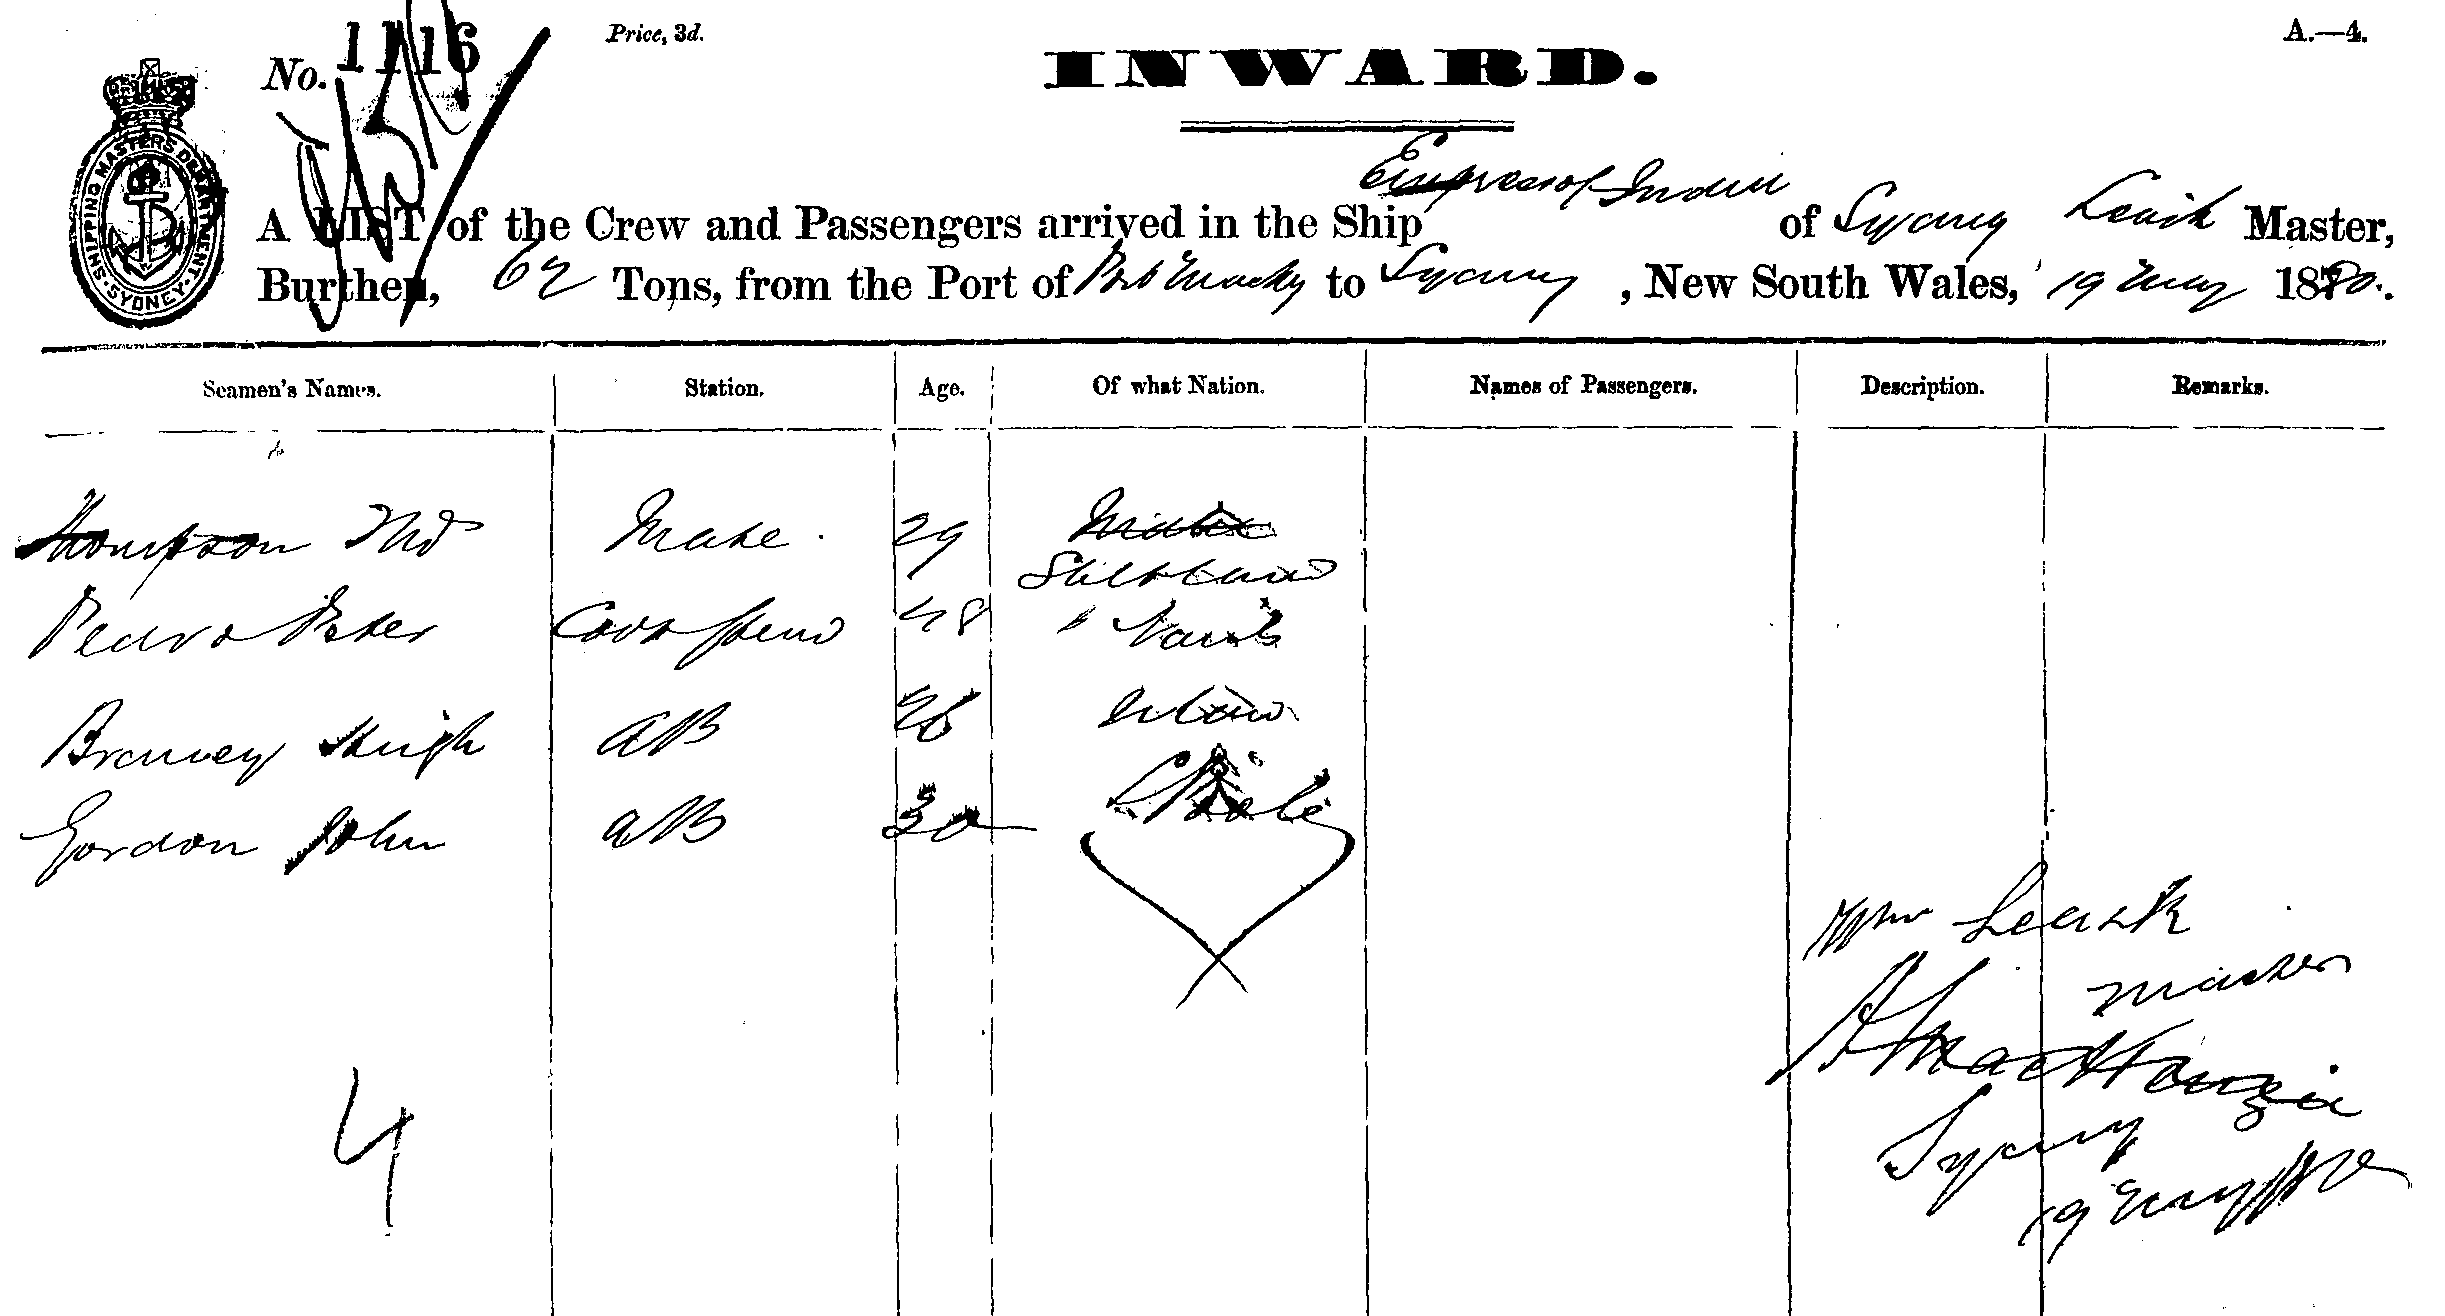 No. 1116
Price, 3d.
A.—4.
INWARD.
SHIPPING MASTERS DEPARTMENT SYDNEY
A LIST of the Crew and Passengers arrived in the Ship Empress of India of Sydney Leask Master,
Burthen, 62 Tons, from the Port of Port Macky to Sydney, New South Wales, 19 May 1880.
Seamen's Names. Station. Age. Of what Nation. Names of Passengers. Description. Remarks.
Thompson Thos Mate 29 Shetland
Pedro Peter Cook 48
Hugh AB 26
Gordon John AB 30
Wm Leask
Master
Sydney
19 May 80
4